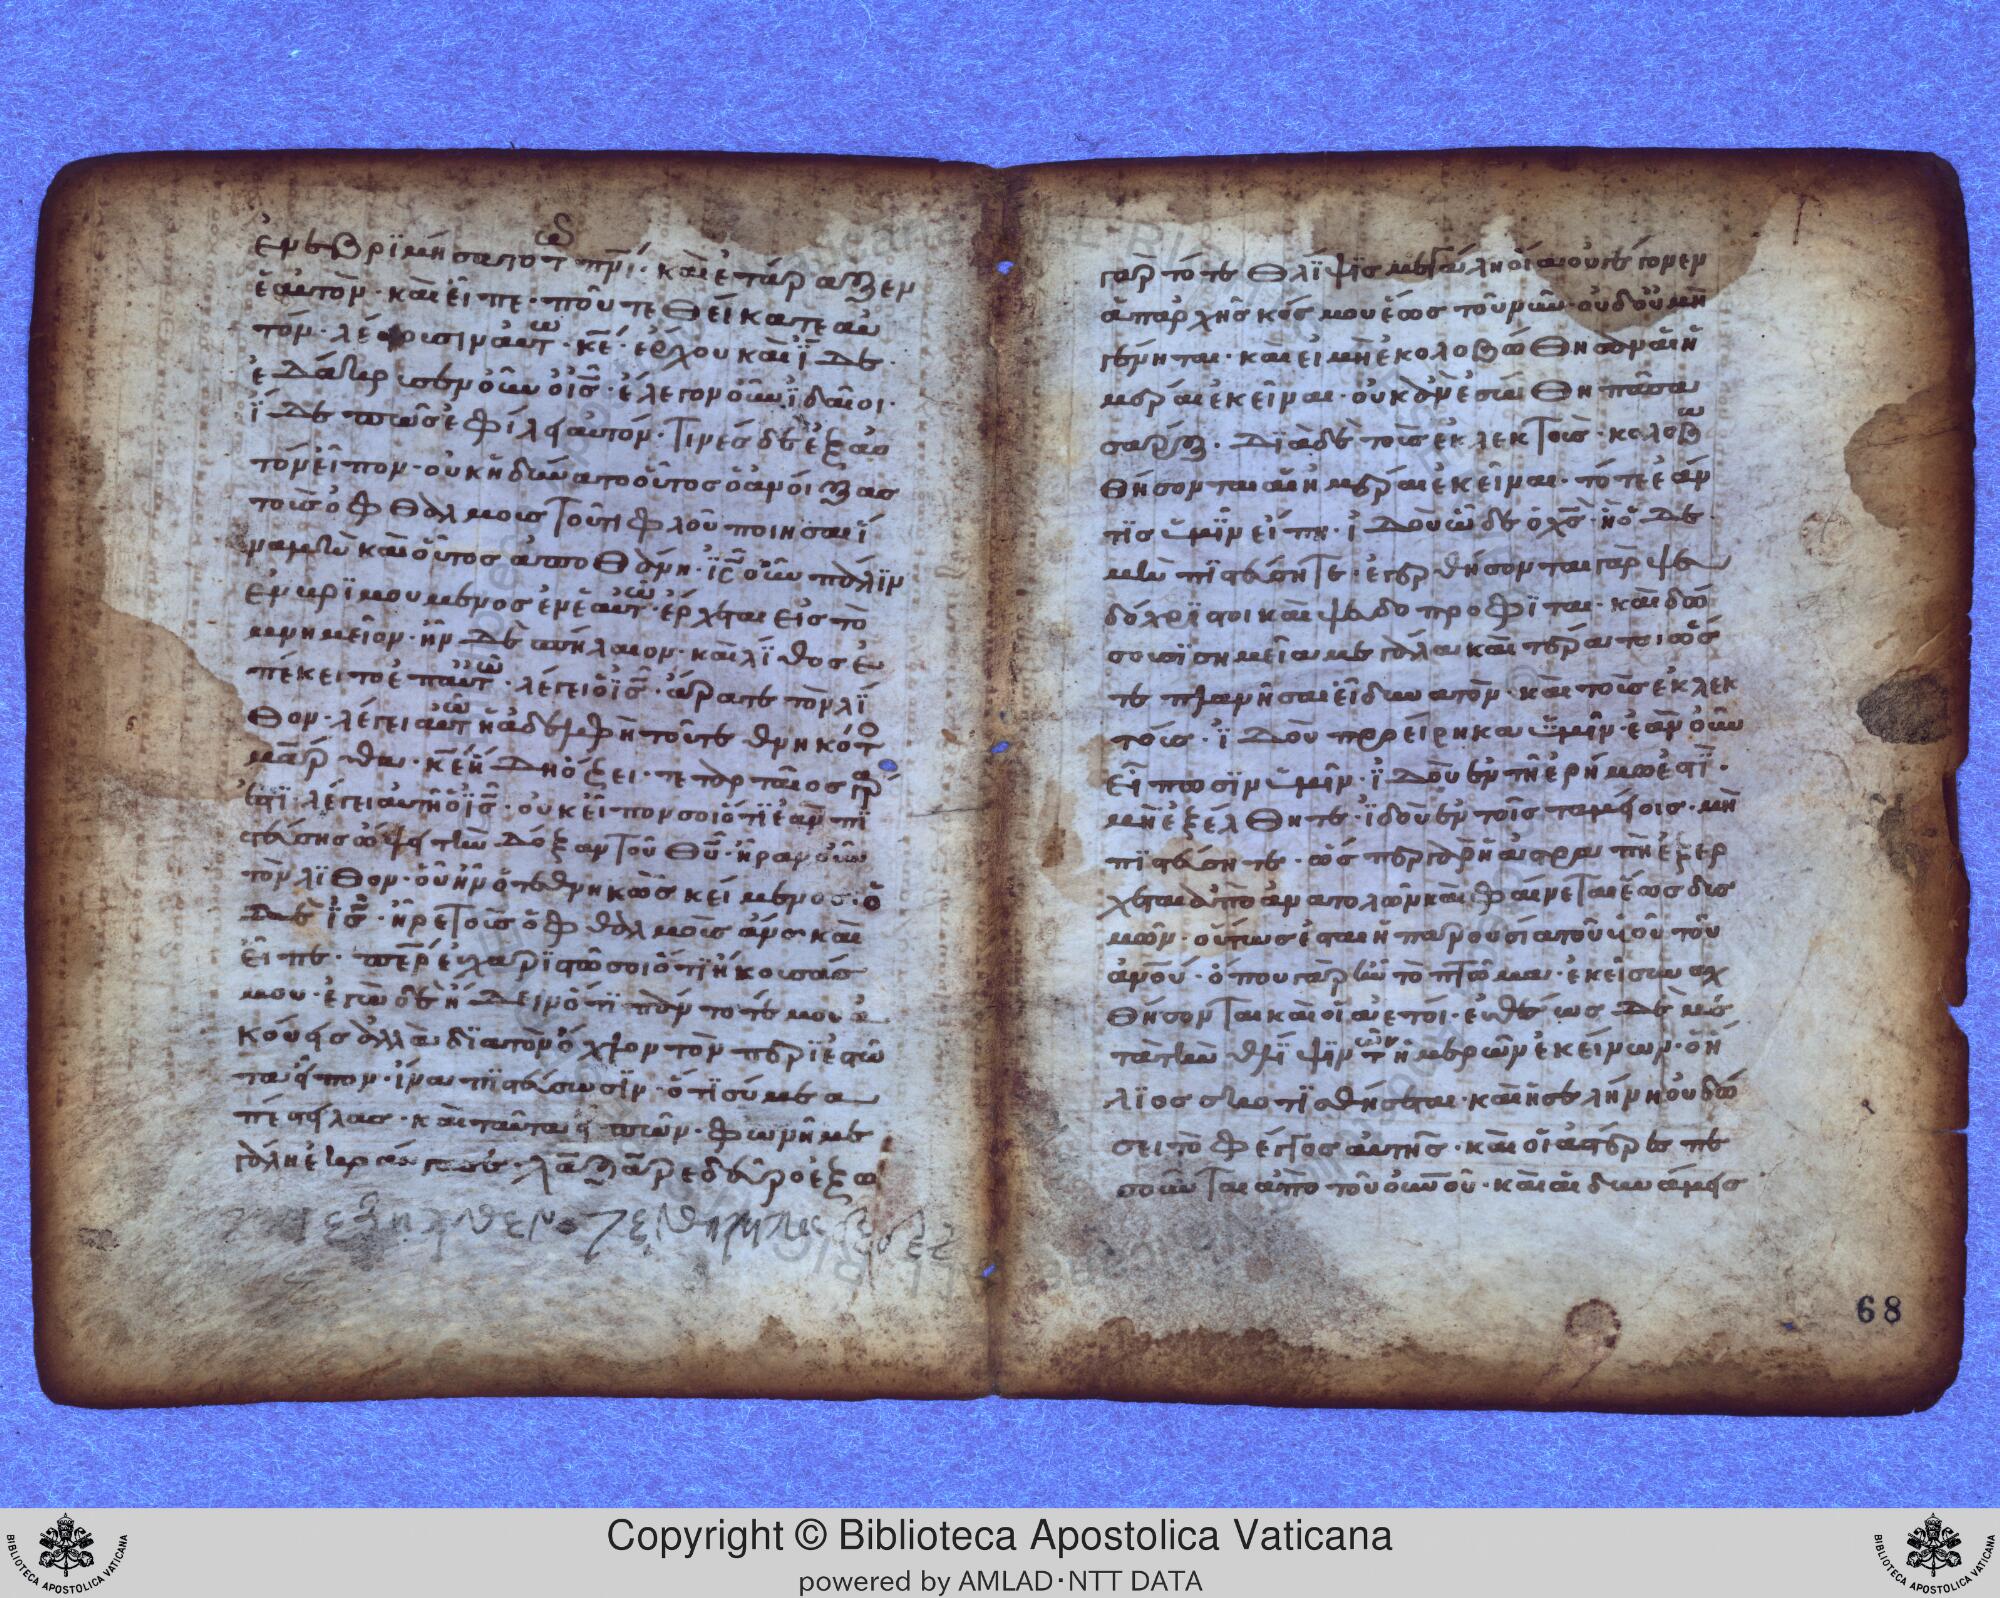 ἐνεβριμήσατο τ πνι · καὶ ἐτάραξεν
ἑαυτὸν · καὶ εἶπε · ποῦ τεθείκατε αυ
τόν · λέγουσιν αὐτ · κε · ἔρχου καὶ ἴδε ·
ἐδάκρυσεν οὖν ὁ ις · ἔλεγον οὖν ϊουδαῖοι ·
ἴδε πῶς ἐφίλει αὐτόν · τινὲς δὲ ἐξ αὐ
τὸν εἶπον · οὐκ ἠδύνατο οὗτος ὁ ἀνοίξας
τοὺς ὀφθαλμοὺς τοῦ τυφλοῦ ποιῆσαι ἵ
να μὴ καὶ οὗτος ἀποθάνη · ις οὖν πάλϊν
μνημεῖον · ἦν δὲ σπήλαιον · καὶ λίθος ἐ
πέκειτο ἐπ αὐτ · λέγει ὁ ις · ἄρατε τὸν λί
θον · λέγει αὐτ ἡ ἀδελφὴ τοῦ τεθνηκότ
μάρθα · κε ἤδη ὄζει · τετορταῖος γάρ
ἐστϊ · λέγει αὐτῆ ὁ ις · οὐκ εἶπον σοι ὅτι ἐὰν πϊ
στεύσης ὄψει τὴν δόξαν τοῦ θυ · ἦραν οὖν
τὸν λϊθον · οὗ ἦν ὁ τεθνηκὼς κείμενος · ὁ
δὲ ις · ἦρε τοὺς ὀφθαλμοὺς ἄνω καὶ
εἶπε · περ εὐχαρϊστῶ σοι ὅτϊ ἤκουσάς
μου · ἐγὼ δὲ ἤδειν ὅτϊ πάντοτέ μου ἀ
κούεις ἀλλὰ δϊα τὸν ὄχλον τὸν περϊεστῶ
τα εἶπον · ἵνα πϊστεύσωσϊν · ὅτϊ σύ με α
πέστειλας · καὶ ταῦτα εἰπὼν · φωνῆ με
γάλη ἐκραύγασε · λάζαρε δεῦρο ἔξω
γὰρ τότε θλῖψϊς μεγάλη οἵα οὐ γέγονεν
ἀπαρχῆς κόσμου ἕως τοῦ νῦν · οὐδοῦ μὴ
γένηται · καὶ εἰ μὴ ἐκολοβώθησαν αἱ ἡ
μέραι ἐκεῖναι · οὐκ ἂν ἐσώθη πᾶσα
σάρξ · δϊὰ δὲ τοὺς ἐκλεκτοὺς · κολοβω
θήσονται αἱ ἡμέραι ἐκεῖναι · τότε ἐάν
τϊς ὑμῖν εἴπη · ἰδοὺ ὧδε ὁ χς · ἢ ὧδε
μὴ πϊστεύσητε · ἐγερθήσονται γὰρ ψευ
δόχρϊστοι καὶ ψευδοπροφῖται · καὶ δώ
σουσϊ σημεῖα μεγάλα καὶ τέρατα · ὥς
τε πλανῆσαι εἰ δυνατὸν · καὶ τοὺς ἐκλεκ
τούς · ἰδοὺ προείρηκα ὑμῖν · ἐὰν οὖν
εἴπωσϊν ὑμῖν · ἰδοὺ ἐν τῆ ἐρήμω ἐστϊ ·
μὴ ἐξέλθητε · ἰδοὺ ἐν τοῖς ταμείοις · μὴ
πϊστεύσητε · ὥσπερ γὰρ ἡ ἀστραπὴ ἐξέρ
χεται ἀπὸ ἀνατολῶν καὶ φαίνεται ἕως δυς
μῶν · οὕτως ἔσται ἡ παρουσία τοῦ υἱοῦ τοῦ
ανου · ὅπου γὰρ ἐὰν τὸ πτῶμα · ἐκεῖ συναχ
θήσονται καὶ οἱ ἀετοί · εὐθέως δὲ με
τὰ τὴν θλϊψϊν τῶν ἡμερῶν ἐκείνων · ὁ ἥ
λϊος σκοτϊσθήσεται · καὶ ἡ σελήνη οὐ δώ
σει τὸ φέγγος αὐτῆς · καὶ οἱ ἀστέρες πε
σοῦνται ἀπὸ τοῦ οὐνοῦ · καὶ αἱ δυνάμεις
68
Copyright © Biblioteca Apostolica Vaticana
powered by AMLAD·NTT DATA
BIBLIOTECA APOSTOLICA VATICANA
BIBLIOTECA APOSTOLICA VATICANA